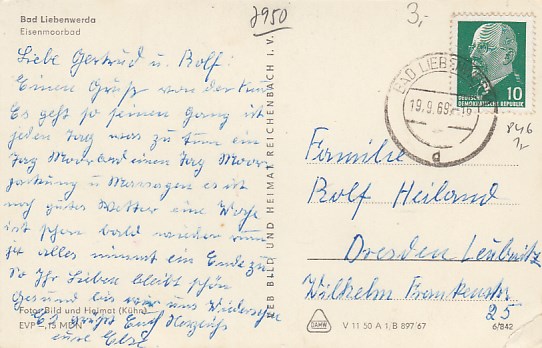 Bad Liebenwerda
Eisenmoorbad
2950
3,-
Liebe Gertrud u. Rolf:
Einen Gruß von der Kur
Es geht so seinen Gang ist
jeden Tag was zu tun ein
Tag Moorbad einen Tag Moor
packung u Massagen es ist
noch gutes Wetter eine Woche
ist schon bald wieder rum
ja alles nimmt ein Ende zu
So Ihr Lieben bleibt schön
Gesund bis wir uns Wiedersehen
Es grüßt Euch Herzlichst
eure Elsi
Foto: Bild und Heimat (Kühn)
EVP -,15 MDN
VEB BILD UND HEIMAT REICHENBACH I. V.
BAD LIEBENWERDA
19.9.69-16
d
10
DEUTSCHE
DEMOKRATISCHE REPUBLIK
846
1,-
Familie
Rolf Heiland
Dresden Leubnitz
Wilhelm Franken str
25
GAMW
V 11 50 A 1/B 897/67
6/842